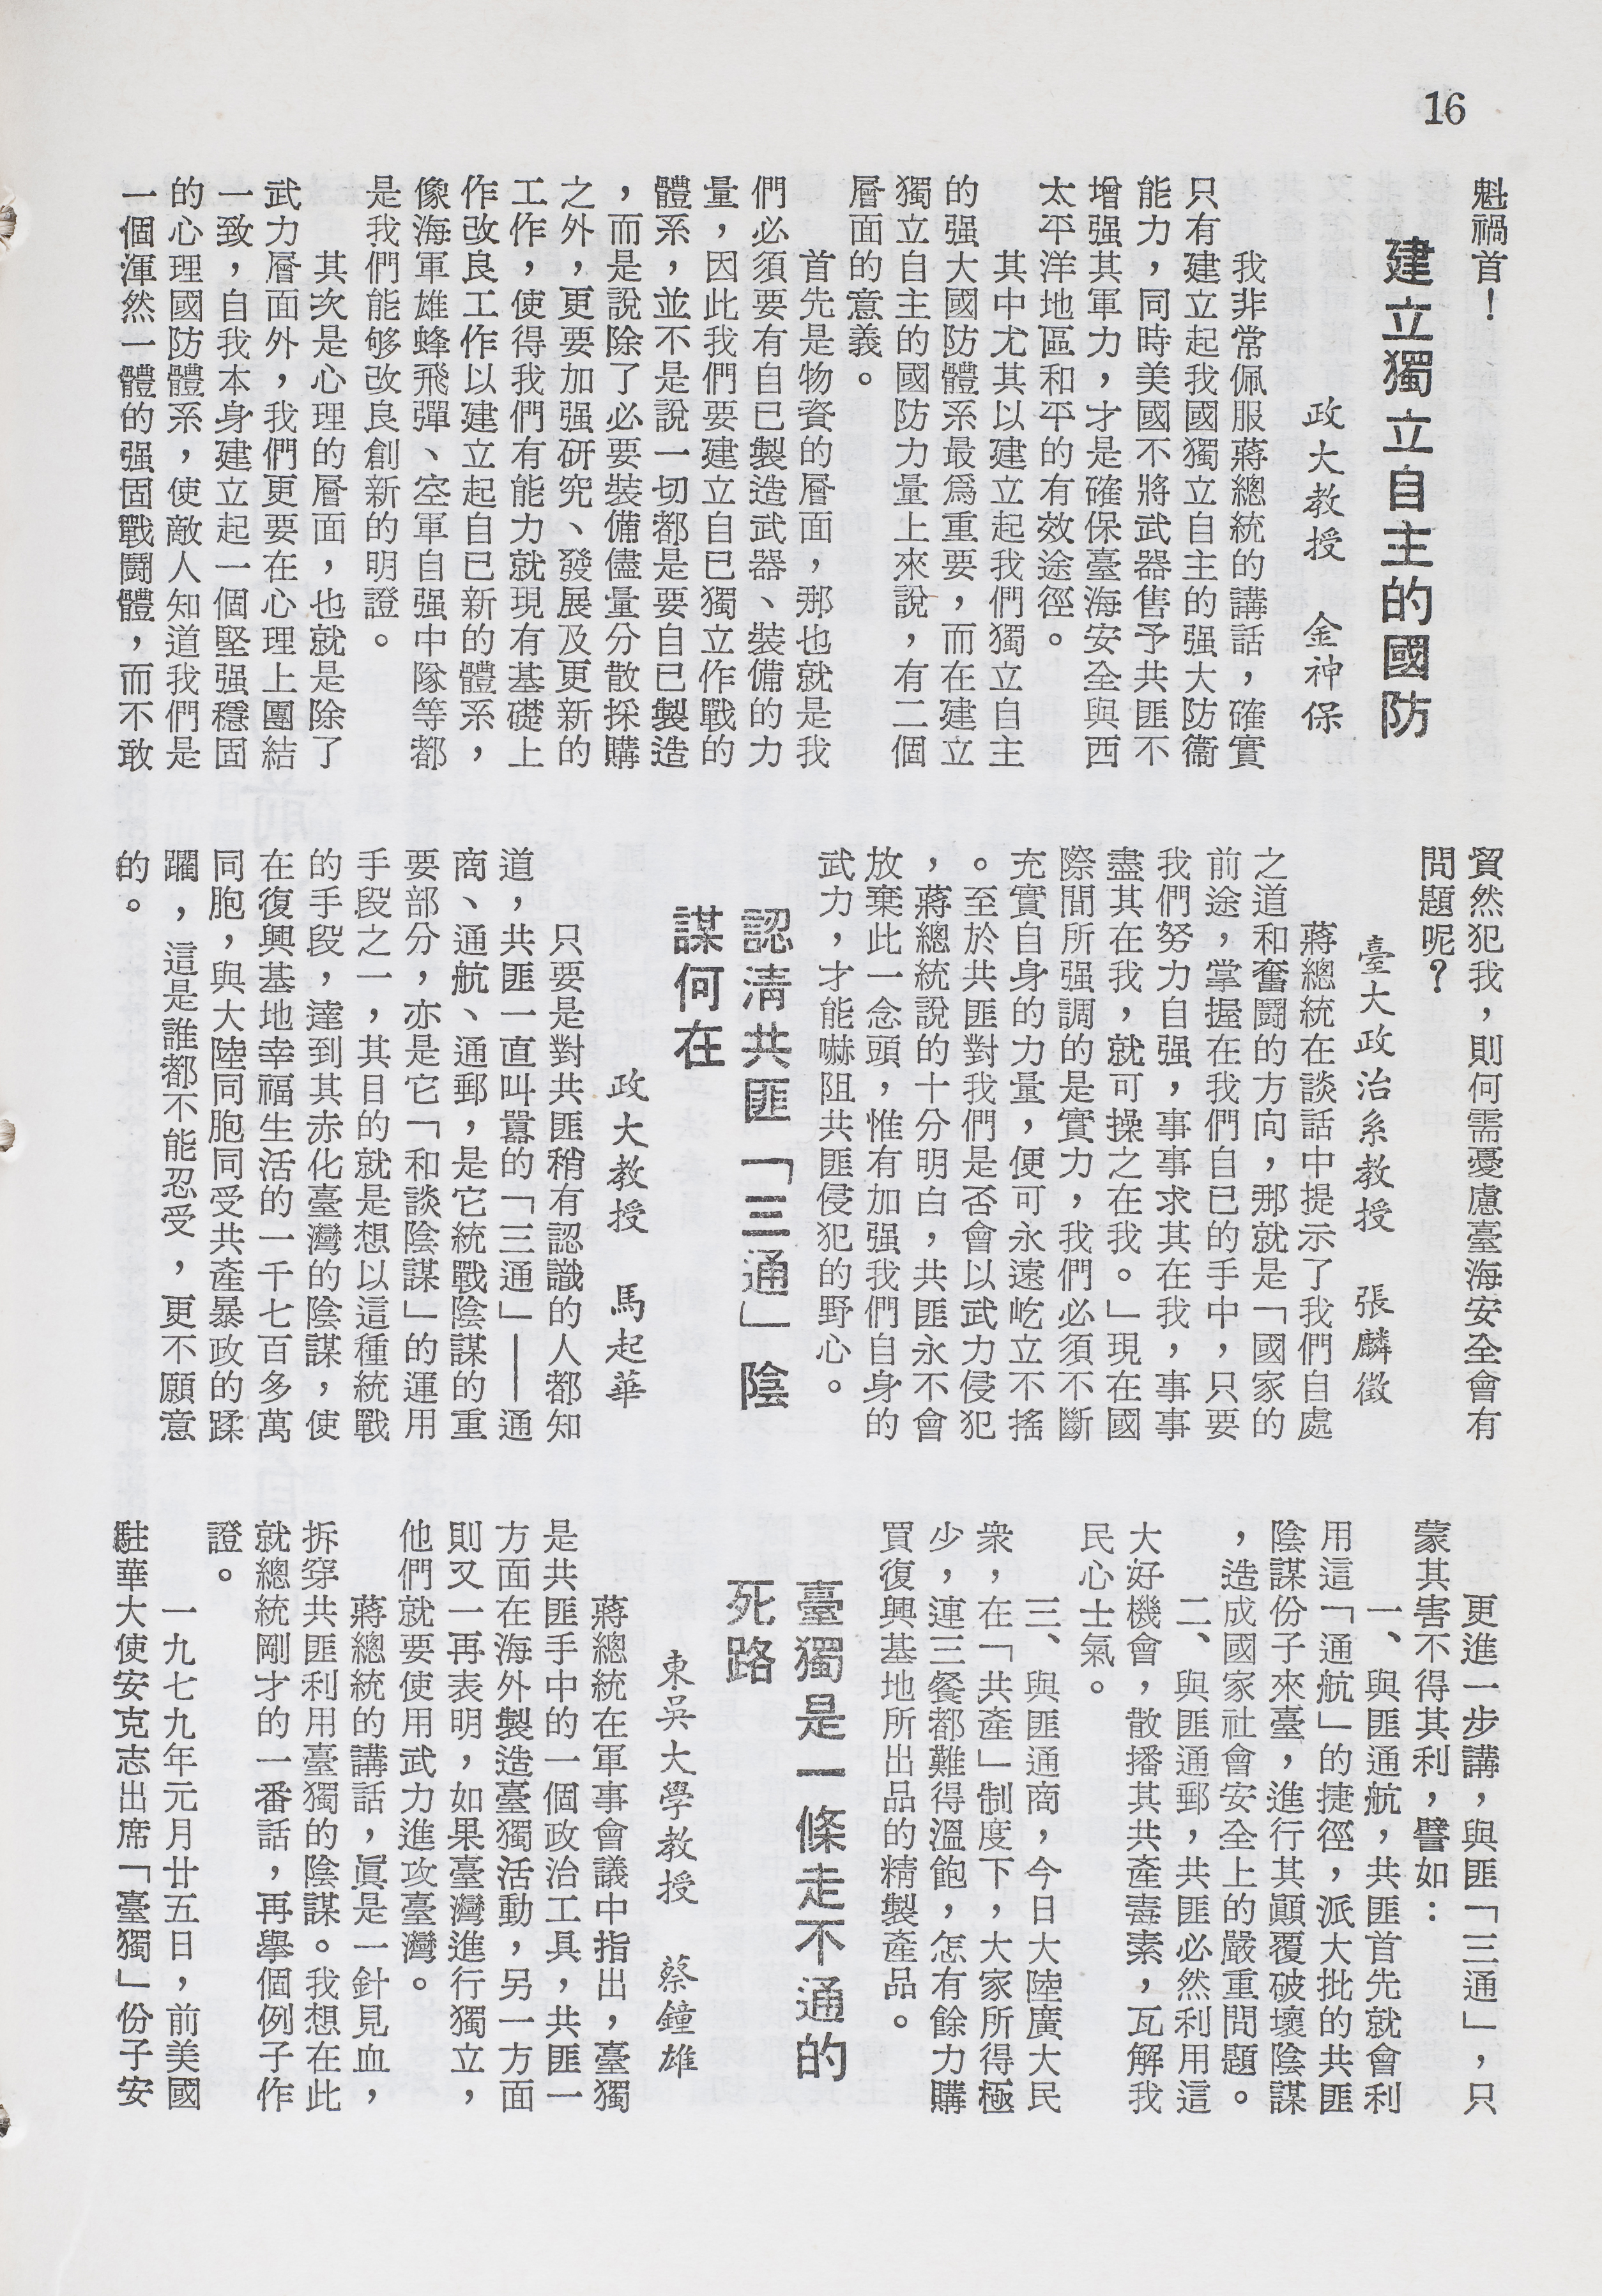 16
魁禍首！
建立獨立自主的國防
政大教授　金神保
我非常佩服蔣總統的講話，確實
只有建立起我國獨立自主的强大防衞
能力，同時美國不將武器售予共匪不
增强其軍力，才是確保臺海安全與西
太平洋地區和平的有效途徑。
其中尤其以建立起我們獨立自主
的强大國防體系最爲重要，而在建立
獨立自主的國防力量上來說，有二個
層面的意義。
首先是物資的層面，那也就是我
們必須要有自已製造武器、裝備的力
量，因此我們要建立自已獨立作戰的
體系，並不是說一切都是要自已製造
，而是說除了必要裝備儘量分散採購
之外，更要加强研究、發展及更新的
工作，使得我們有能力就現有基礎上
作改良工作以建立起自已新的體系，
像海軍雄蜂飛彈、空軍自强中隊等都
是我們能够改良創新的明證。
其次是心理的層面，也就是除了
武力層面外，我們更要在心理上團結
一致，自我本身建立起一個堅强穩固
的心理國防體系，使敵人知道我們是
一個渾然一體的强固戰鬪體，而不敢
貿然犯我，則何需憂慮臺海安全會有
問題呢？
臺大政治系教授　張麟徵
蔣總統在談話中提示了我們自處
之道和奮鬪的方向，那就是「國家的
前途，掌握在我們自已的手中，只要
我們努力自强，事事求其在我，事事
盡其在我，就可操之在我。」現在國
際間所强調的是實力，我們必須不斷
充實自身的力量，便可永遠屹立不搖
。至於共匪對我們是否會以武力侵犯
，蔣總統說的十分明白，共匪永不會
放棄此一念頭，惟有加强我們自身的
武力，才能嚇阻共匪侵犯的野心。
認清共匪「三通」陰
謀何在
政大教授　馬起華
只要是對共匪稍有認識的人都知
道，共匪一直叫囂的「三通」——通
商、通航、通郵，是它統戰陰謀的重
要部分，亦是它「和談陰謀」的運用
手段之一，其目的就是想以這種統戰
的手段，達到其赤化臺灣的陰謀，使
在復興基地幸福生活的一千七百多萬
同胞，與大陸同胞同受共產暴政的蹂
躙，這是誰都不能忍受，更不願意
的。
更進一步講，與匪「三通」，只
蒙其害不得其利，譬如：
一、與匪通航，共匪首先就會利
用這「通航」的捷徑，派大批的共匪
陰謀份子來臺，進行其顚覆破壞陰謀
，造成國家社會安全上的嚴重問題。
二、與匪通郵，共匪必然利用這
大好機會，散播其共產毒素，瓦解我
民心士氣。
三、與匪通商，今日大陸廣大民
衆，在「共產」制度下，大家所得極
少，連三餐都難得溫飽，怎有餘力購
買復興基地所出品的精製產品。
臺獨是一條走不通的
死路
東吳大學教授　蔡鐘雄
蔣總統在軍事會議中指出，臺獨
是共匪手中的一個政治工具，共匪一
方面在海外製造臺獨活動，另一方面
則又一再表明，如果臺灣進行獨立，
他們就要使用武力進攻臺灣。
蔣總統的講話，眞是一針見血，
拆穿共匪利用臺獨的陰謀。我想在此
就總統剛才的一番話，再舉個例子作
證。
一九七九年元月廿五日，前美國
駐華大使安克志出席「臺獨」份子安